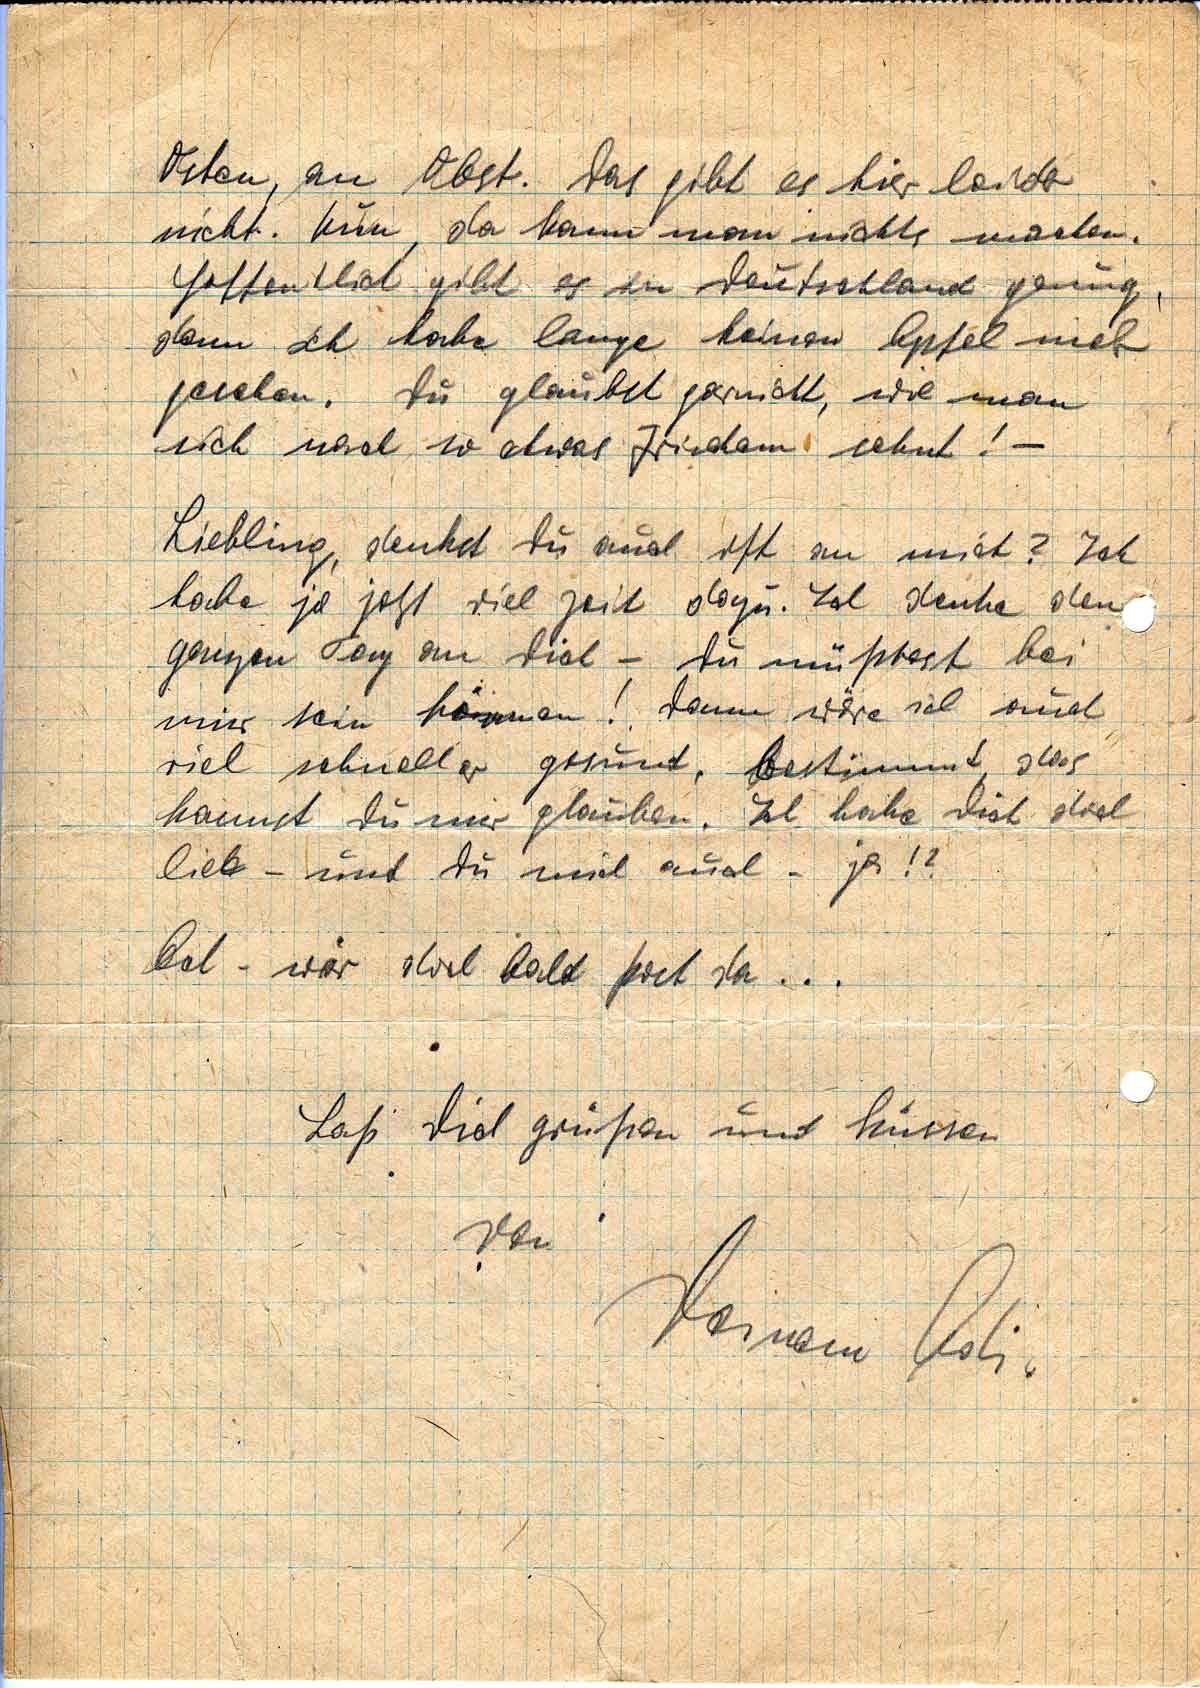 Osten, an Obst. Das gibt es hier leider
nicht. Nun, da kann man nichts machen.
Hoffentlich gibt es in Deutschland genug,
denn ich habe lange keinen Apfel mehr
gesehen. Du glaubst garnicht, wie man
sich nach so etwas Frieden sehnt! –
Liebling, denkst Du auch oft an mich? Ich
habe ja jetzt viel Zeit dazu. Ich denke den
ganzen Tag an Dich – Du müßtest bei
mir sein können! Dann wäre ich auch
viel schneller gesund, bestimmt, das
kannst Du mir glauben. Ich habe Dich doch
lieb – und Du mich auch – ja!?
Ach – wär doch bald Post da...
Laß Dich grüßen und küssen
von
Deinem